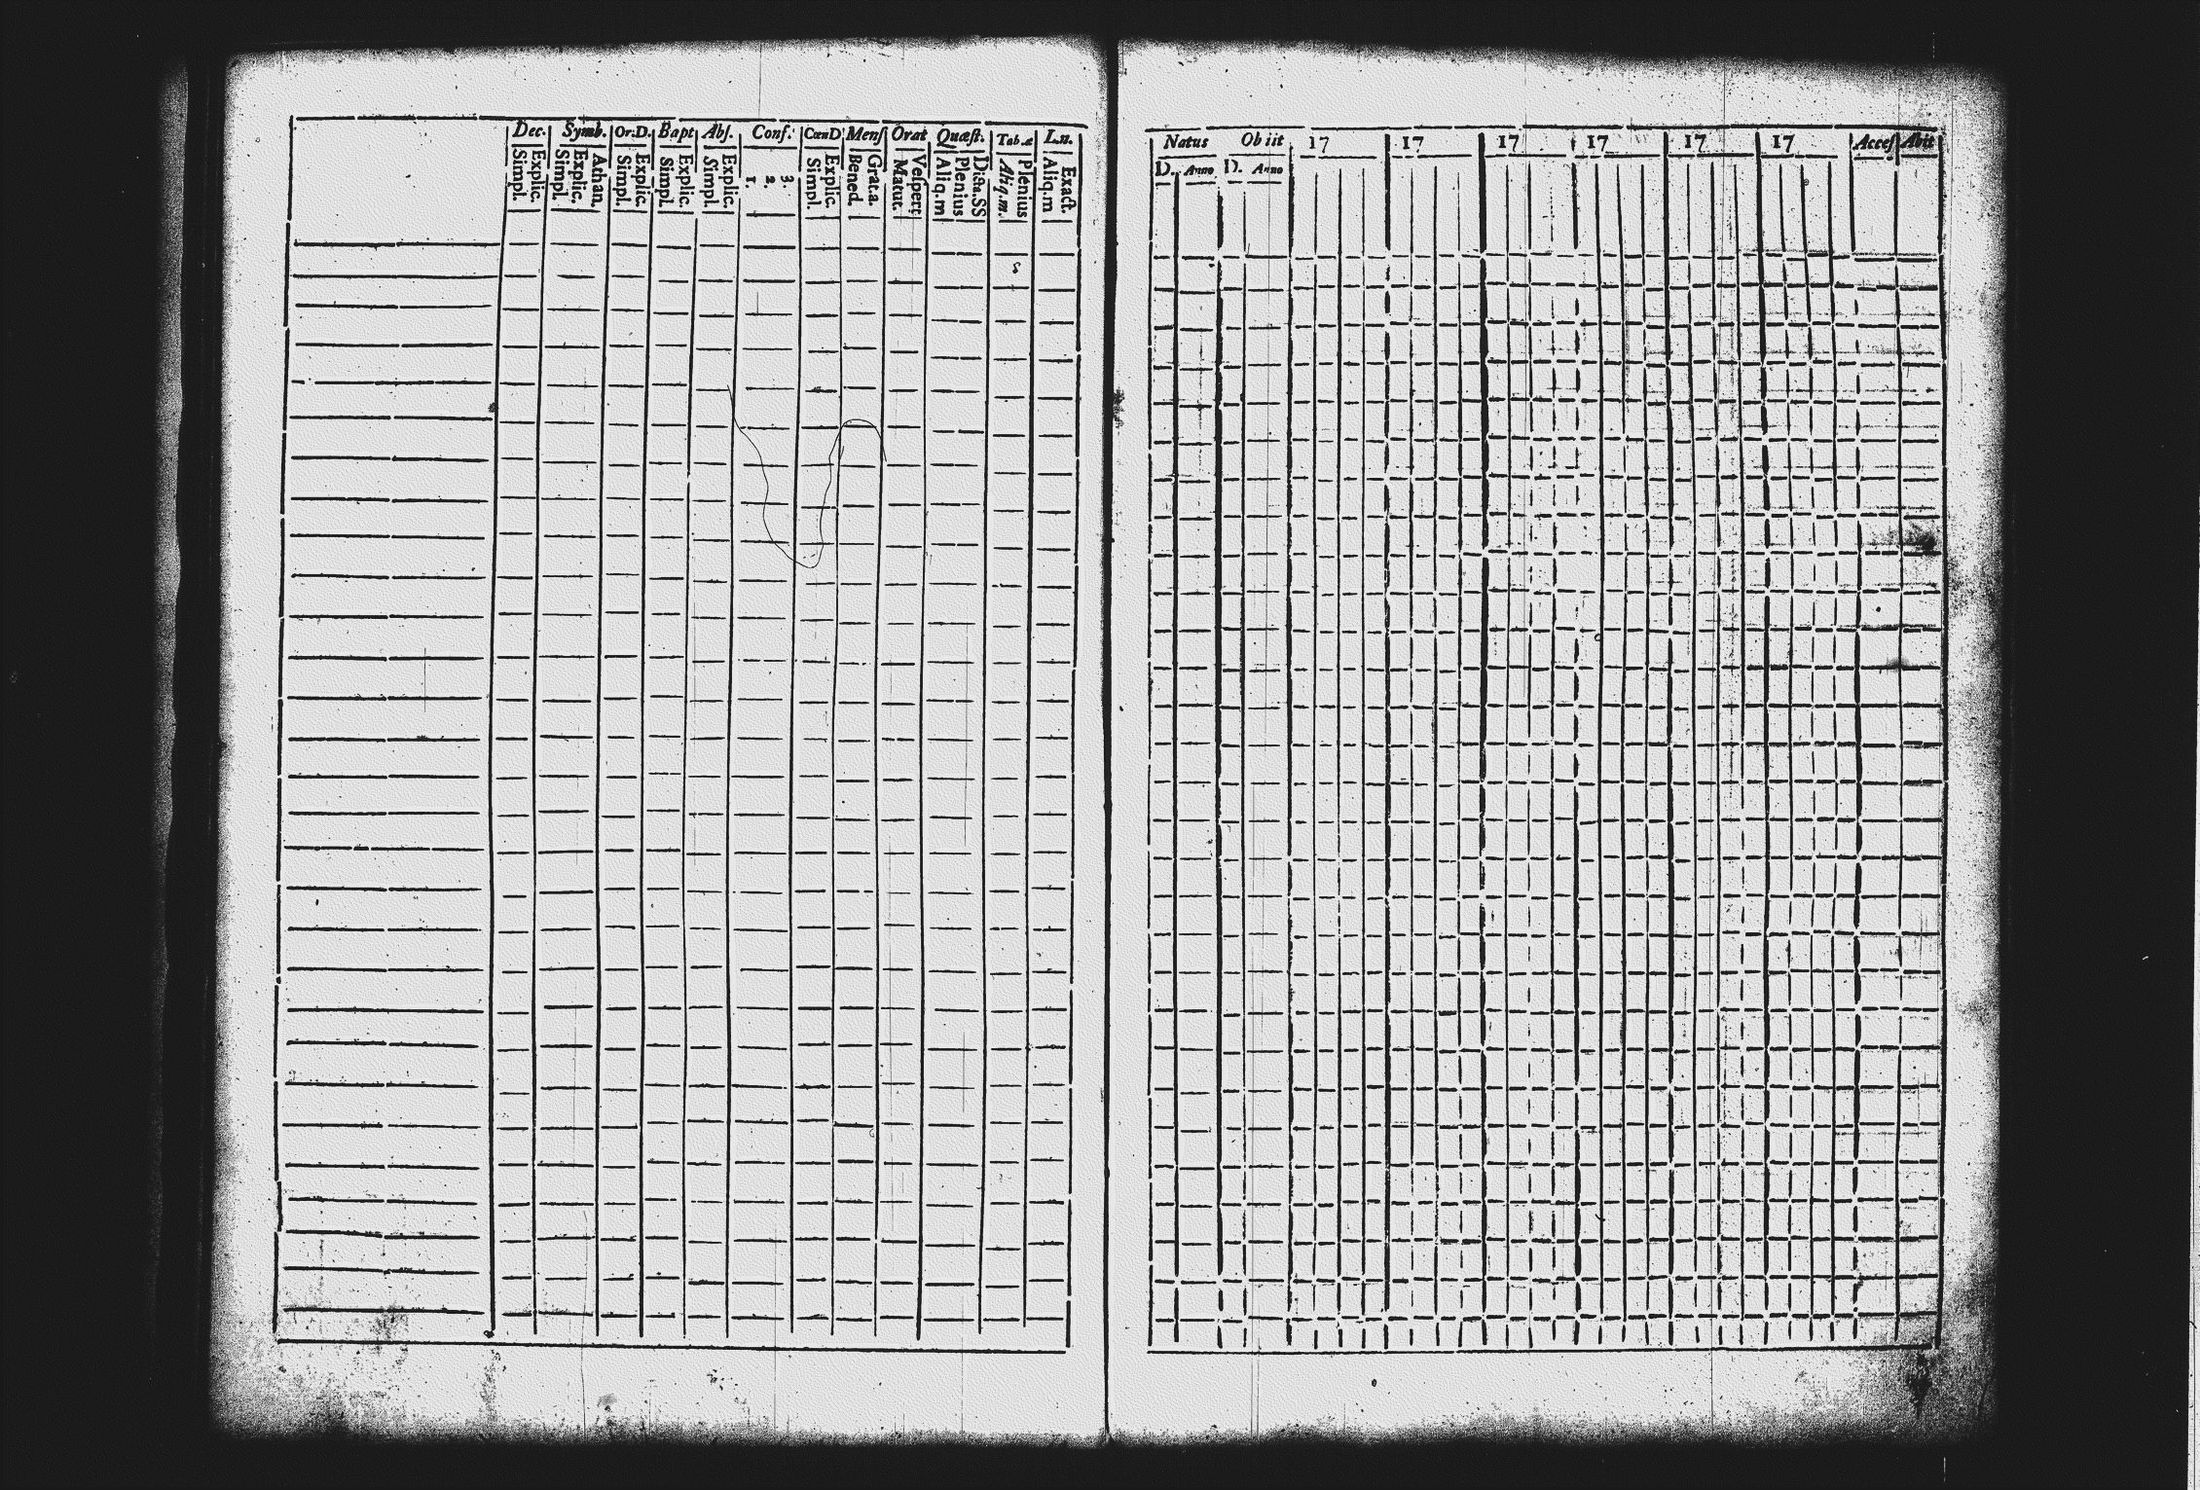 Dec. Symb. Or.D. Bapt Abſ. Conf. CœnD Menſ Orat Quæſt. Tab.æ L.n.
Simpl. Explic. Simpl. Explic. Athan. Simpl. Explic. Simpl. Explic. Simpl. Explic. 1. 2. 3. Simpl. Explic. Bened. Grat.a. Matut. Veſpert Aliq.m Plenius Dicta.SS Aliq.m. Plenius Aliq.m Exact.
Natus Obiit 17 17 17 17 17 17 Acceſ Abit
D. Anno D. Anno